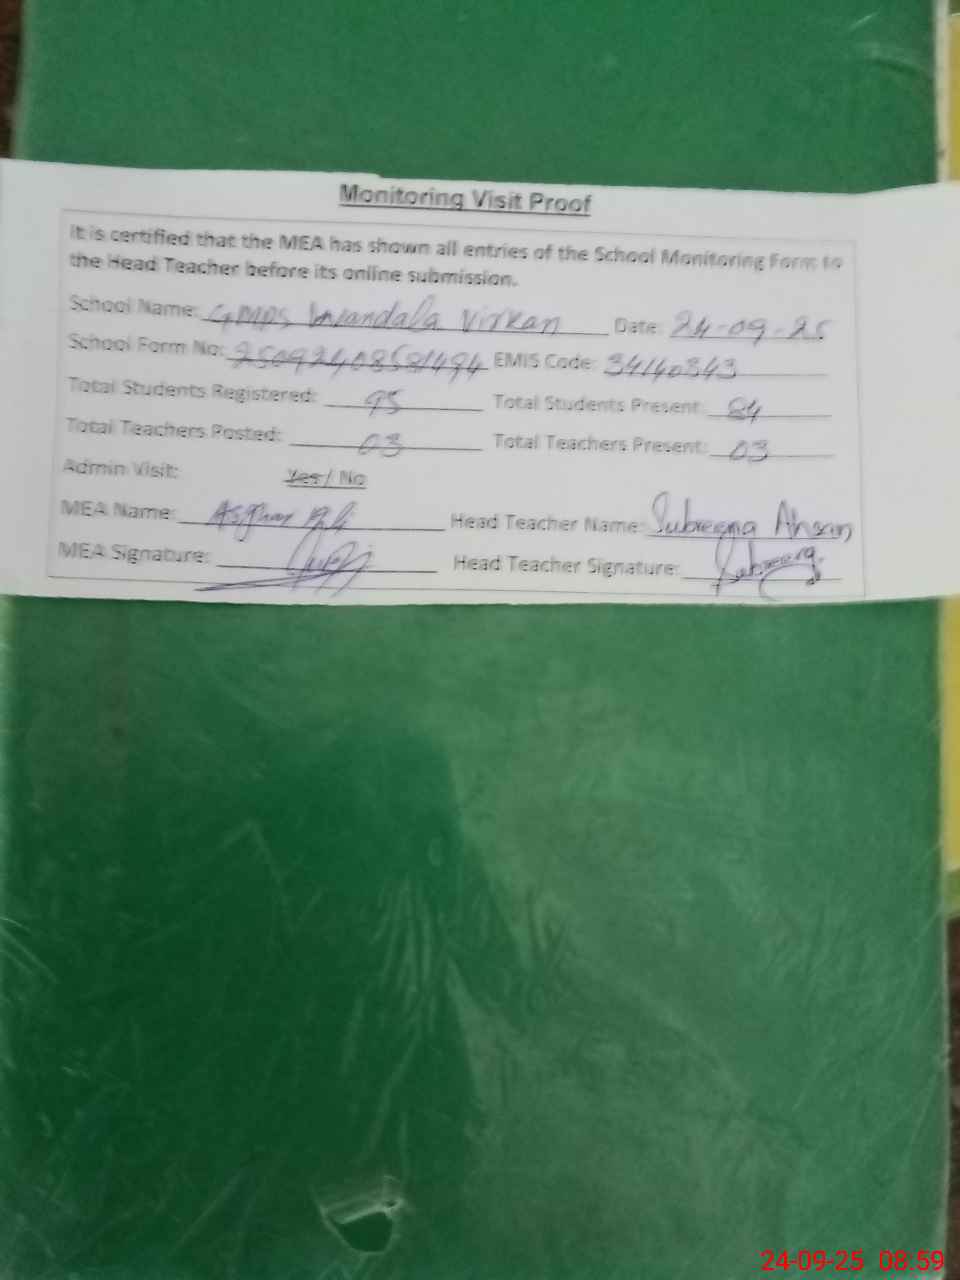 Monitoring Visit Proof
It is certified that the MEA has shown all entries of the School Monitoring Form to
the Head Teacher before its online submission.
School Name: GMPS Wandala Virkan Date: 24-09-25
School Form No: 25092408581494 EMIS Code: 34140343
Total Students Registered: 95 Total Students Present: 84
Total Teachers Posted: 03 Total Teachers Present: 03
Admin Visit: Yes / No
MEA Name: Asghar Ali Head Teacher Name: Ahsan
MEA Signature: Head Teacher Signature:
24-09-25 08:59